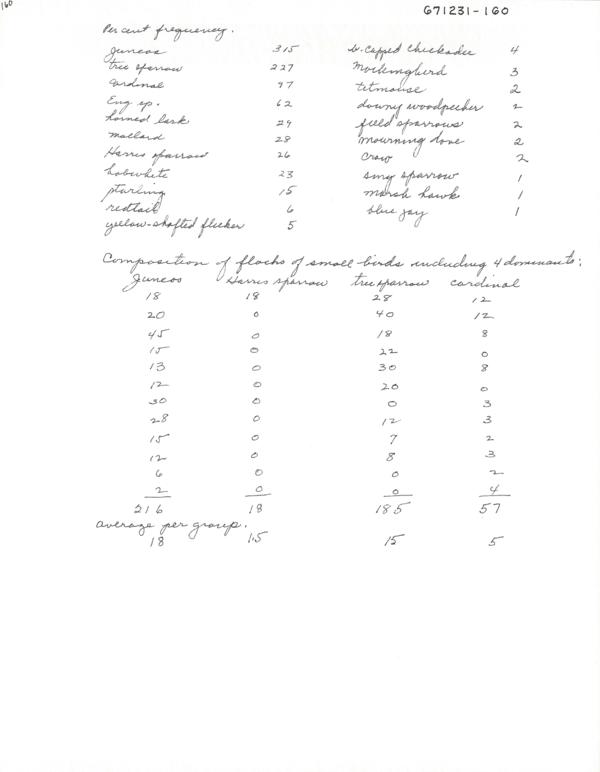 160
671231-160
Per cent frequency.
Juncos 315
tree sparrow 227
Cardinal 97
Eng sp. 62
horned lark 29
mallard 28
Harris sparrow 26
bobwhite 23
starling 15
redtail 6
yellow-shafted flicker 5
b. capped chickadee 4
Mockingbird 3
titmouse 2
downy woodpecker 2
field sparrows 2
mourning dove 2
Crow 2
song sparrow 1
marsh hawk 1
blue jay 1
Composition of flocks of small birds including 4 dominants:
Juncos Harris sparrow tree sparrow cardinal
18 18 28 12
20 0 40 12
45 0 18 8
15 0 22 0
13 0 30 8
12 0 20 0
30 0 0 3
28 0 12 3
15 0 7 2
12 0 8 3
6 0 0 2
2 0 0 4
216 18 185 57
average per group.
18 1.5 15 5